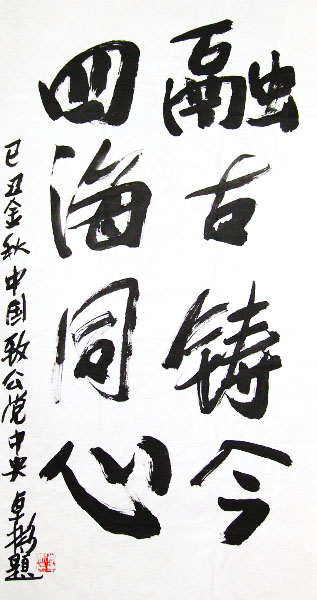 融古铸今
四海同心
己丑金秋中国致公党中央卓彬题